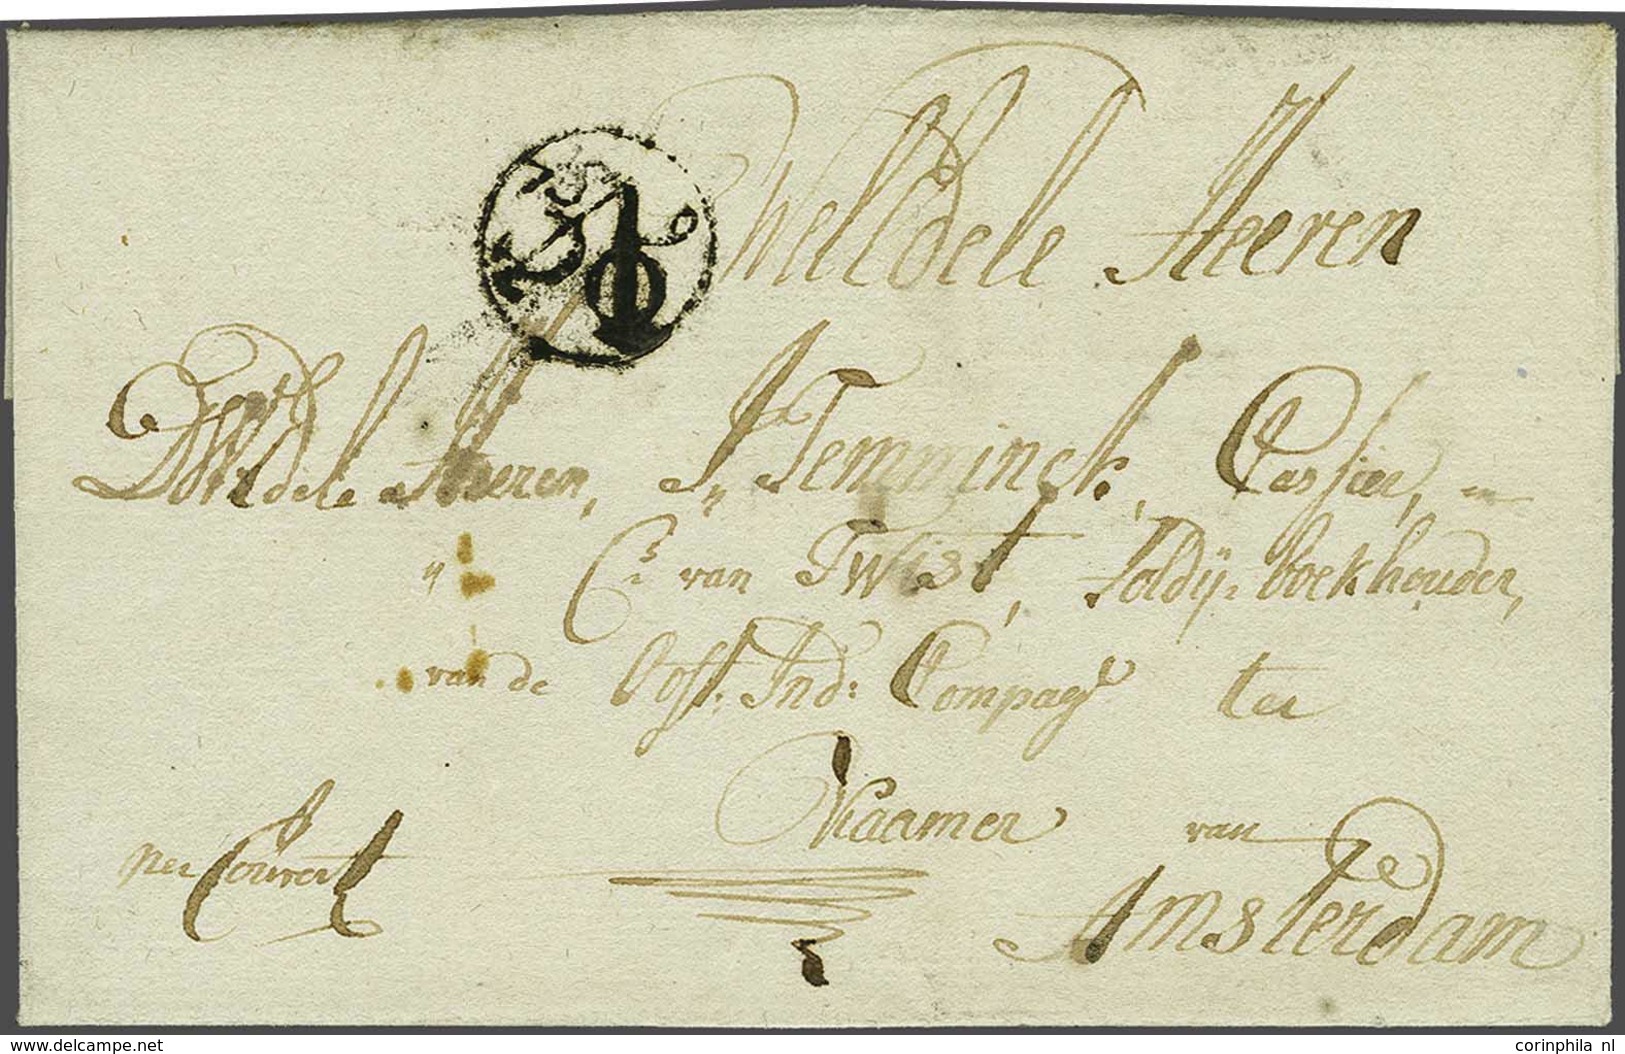 WelEdele Heeren
De WelEdele Heeren, J„ Temminck, Cassier, en
„ Cs. van Twist, Soldij-boekhouder,
van de Oost. Ind: Compagie ter
Kaamer van
per Couvert
Amsterdam
www.delcampe.net
corinphila nl